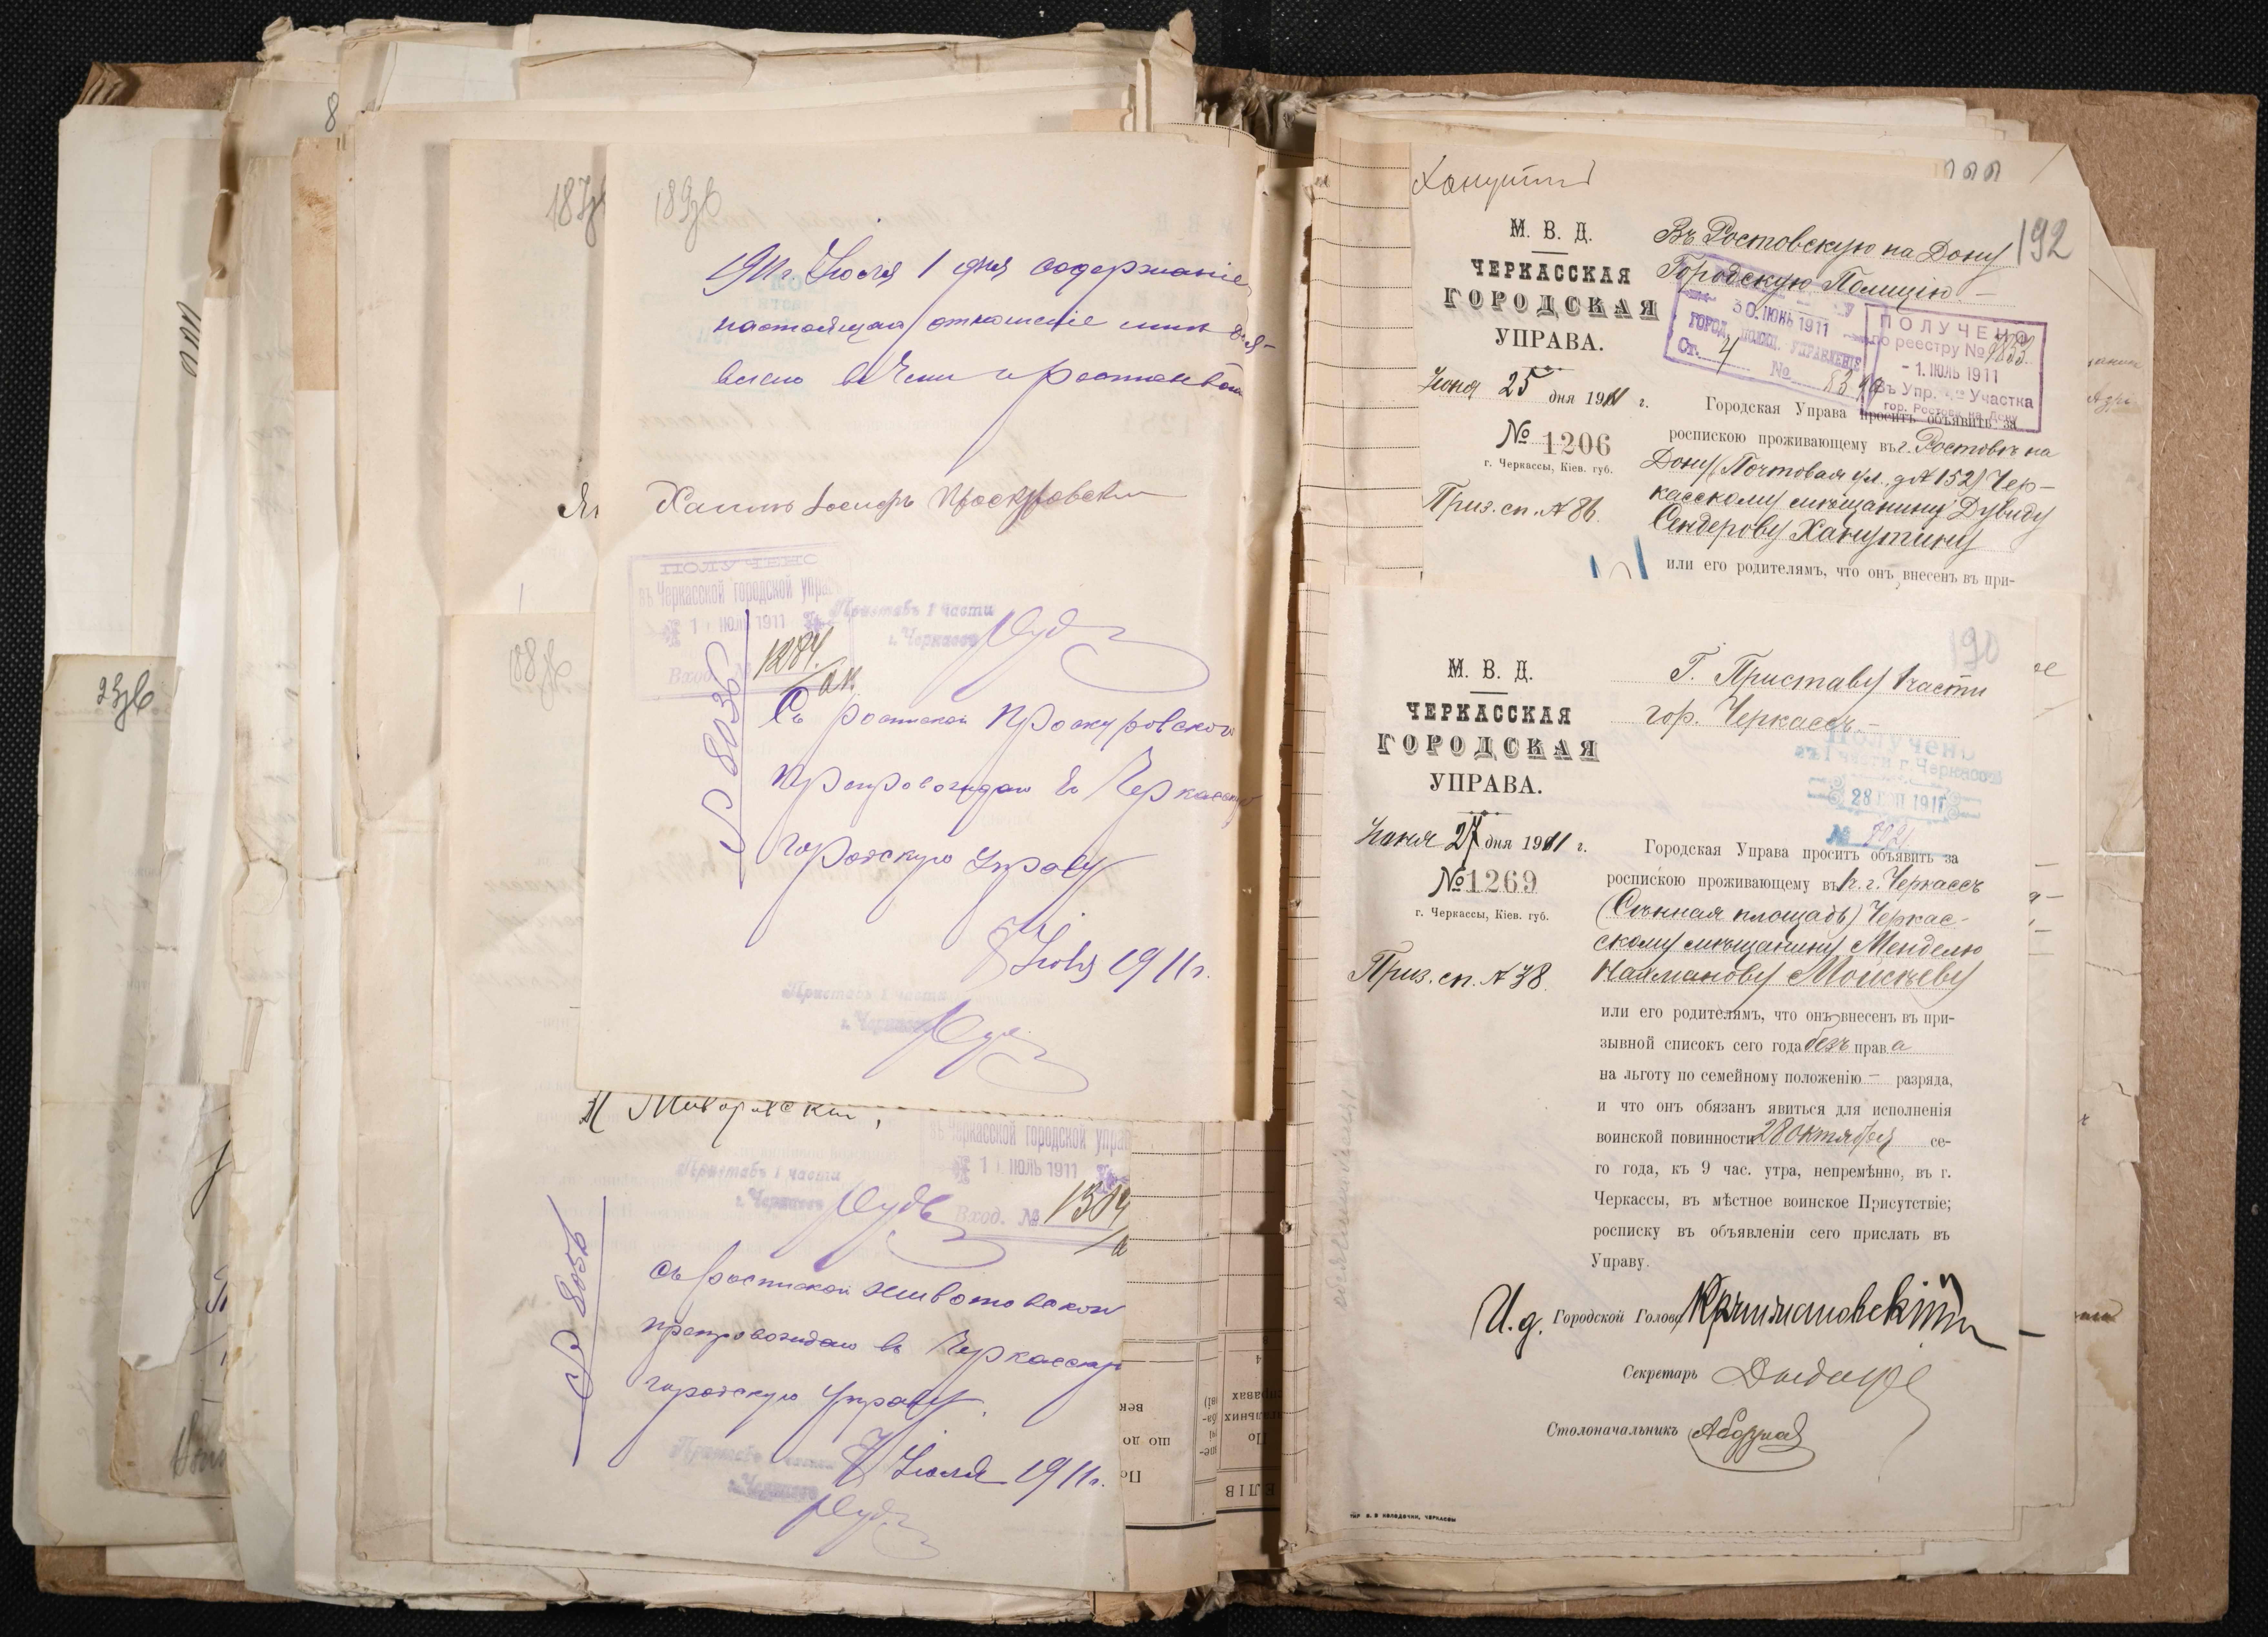 8
187об
189об
1911 г. Июля 1 дня содержаніе
настоящаго отношенія мнѣ объя-
влено въ чемъ и росписываюсь
Хаимъ Іосифъ Проскуровскій
ПОЛУЧЕНО
въ Черкасской городской управѣ
1 ІЮЛЬ 1911
Вход. № 1284
Приставъ 1 части
г. Черкассъ
№ 8036
Съ роспиской Проскуровскаго
препровождаю въ Черкасскую
городскую Управу
8 Июля 1911 г.
Приставъ 1 части
г. Черкассъ
188об
23об
въ Черкасской городской управѣ
1 ІЮЛЬ 1911
Вход. № 1304
Приставъ 1 части
г. Черкассъ
№ 8056
Съ роспиской Животовской
препровождаю въ Черкасскую
городскую Управу.
8 Июля 1911 г.
Приставъ 1 части
г. Черкассъ
Ханутинъ
192
М. В. Д.
ЧЕРКАССКАЯ
ГОРОДСКАЯ
УПРАВА.
Іюня 25 дня 1911 г.
№ 1206
г. Черкассы, Кіев. губ.
Приз. сп. № 86.
Въ Ростовскую на Дону
Городскую Полицію. –
30. ІЮНЬ 1911
ГОРОД. ПОЛИЦ. УПРАВЛЕНІЕ
Ст. 4
№
ПОЛУЧЕНО
по реестру № 9833
- 1. ІЮЛЬ 1911
Въ Упр. Участка
гор. Ростова на Дону
Городская Управа проситъ объявить за
роспискою проживающему въ г. Ростовѣ на
Дону (Почтовая ул., д. № 152) Чер-
касскому мѣщанину Дувиду
Сендерову Ханутину
или его родителямъ, что онъ внесенъ въ при-
190
М. В. Д.
ЧЕРКАССКАЯ
ГОРОДСКАЯ
УПРАВА.
Іюня 27 дня 1911 г.
№ 1269
г. Черкассы, Кіев. губ.
Приз. сп. № 38.
Г. Приставу 1 части
гор. Черкассъ. –
Получено
въ 1 части г. Черкассъ
28 1911
№
Городская Управа проситъ объявить за
роспискою проживающему въ г. Черкассѣ
(Сѣнная площадь) Черкас-
скому мѣщанину Менделю
Нахманову Моисѣеву
или его родителямъ, что онъ внесенъ въ при-
зывной списокъ сего года безъ права
на льготу по семейному положенію – разряда,
и что онъ обязанъ явиться для исполненія
воинской повинности 28 октября се-
го года, къ 9 час. утра, непремѣнно, въ г.
Черкассы, въ мѣстное воинское Присутствіе;
росписку въ объявленіи сего прислать въ
Управу.
И. д. Городской Голова
Секретарь
Столоначальникъ